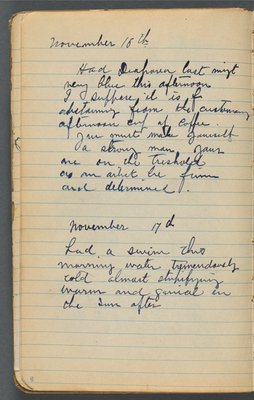 November 16th
Had Diaporen last night
very blue this afternoon
I suppose it is of
abstaining from the customary
afternoon cup of Coffee
You must make yourself
a strong man your
are on the treshold
as an artist be firm
and determined.
November 17th
Had a swim this
morning water tremendously
cold almost stupifying
warm and genial in
the sun after